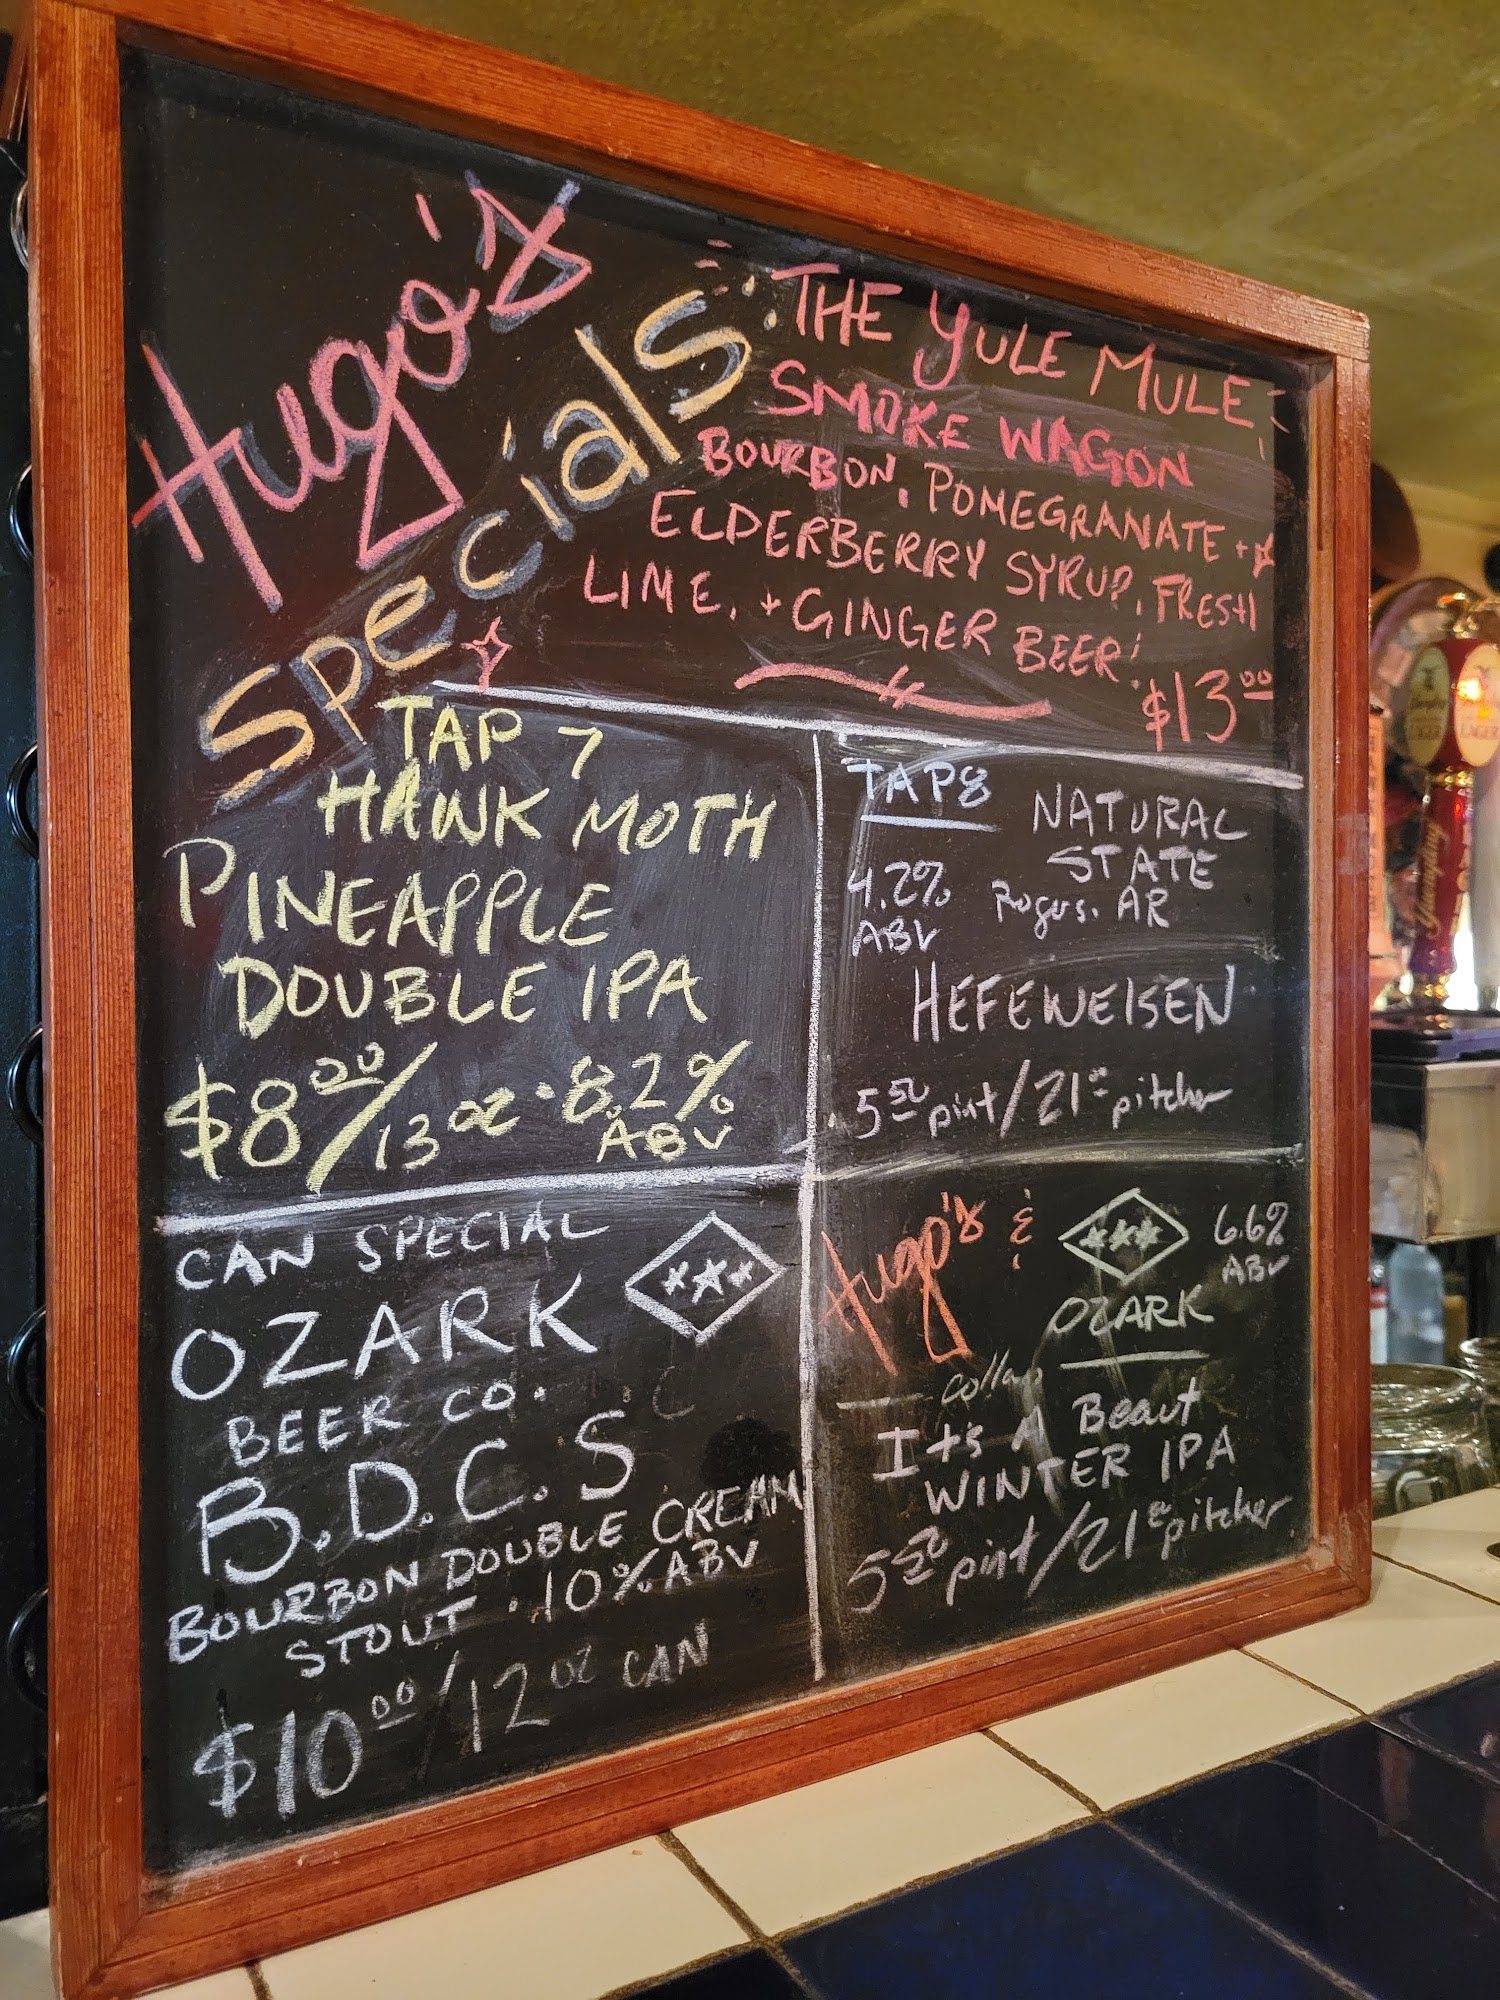 Hugo's
Specials:
THE YULE MULE:
SMOKE WAGON
BOURBON, POMEGRANATE +
ELDERBERRY SYRUP, FRESH
LIME, + GINGER BEER!
$13.00
TAP 7
HAWK MOTH
PINEAPPLE
DOUBLE IPA
$8.00/13 oz · 8.2%
ABV
TAP 8
NATURAL
STATE
Rogers, AR
4.2%
ABV
HEFEWEISEN
5.50 pint/21.00 pitcher
CAN SPECIAL
OZARK
BEER CO.
B.D.C.S
BOURBON DOUBLE CREAM
STOUT · 10% ABV
$10.00/12 oz CAN
Hugo's &
OZARK
6.6%
ABV
collab
It's A Beaut
WINTER IPA
5.50 pint/21.00 pitcher
Yuengling
LAGER